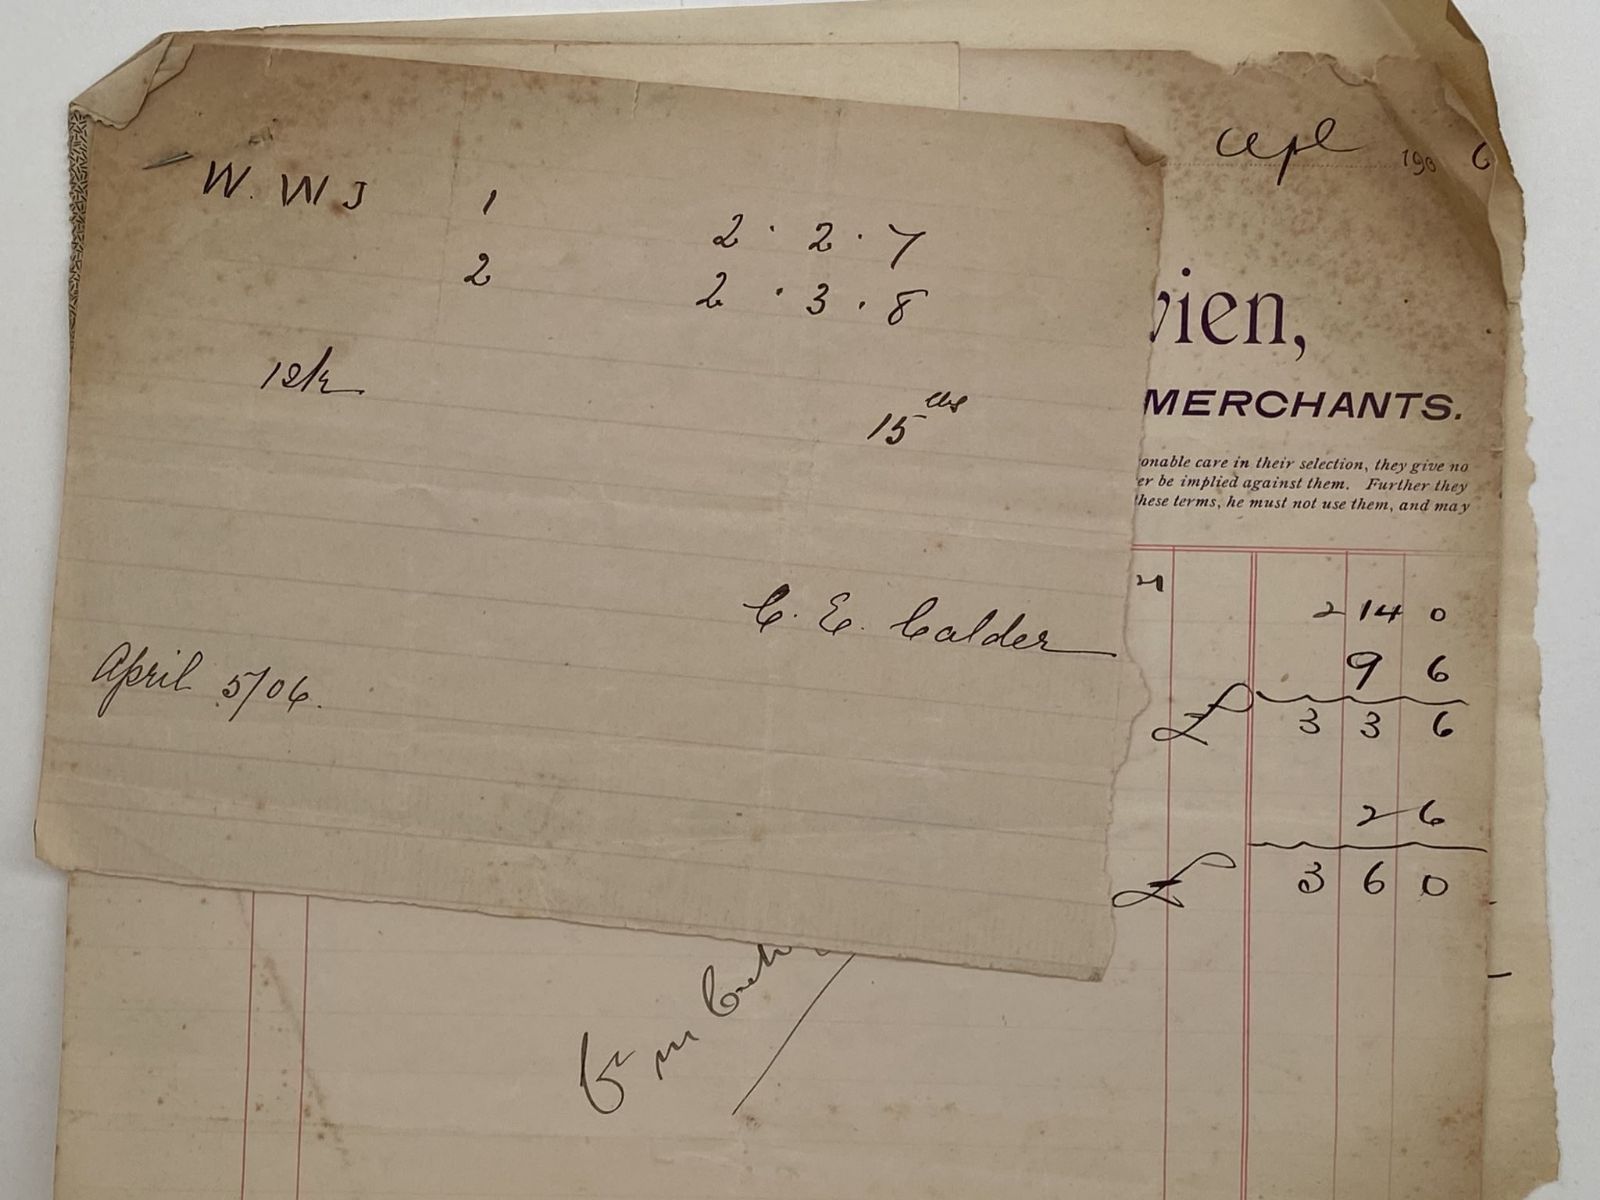 W. W J 1 2 . 2 . 7
2 2 . 3 . 8
12/2 15 lbs
C. E. Calder
April 5/06.
Apl 190 6
vien,
MERCHANTS.
onable care in their selection, they give no
er be implied against them. Further they
these terms, he must not use them, and may
2 14 0
9 6
£ 3 3 6
2 6
£ 3 6 0